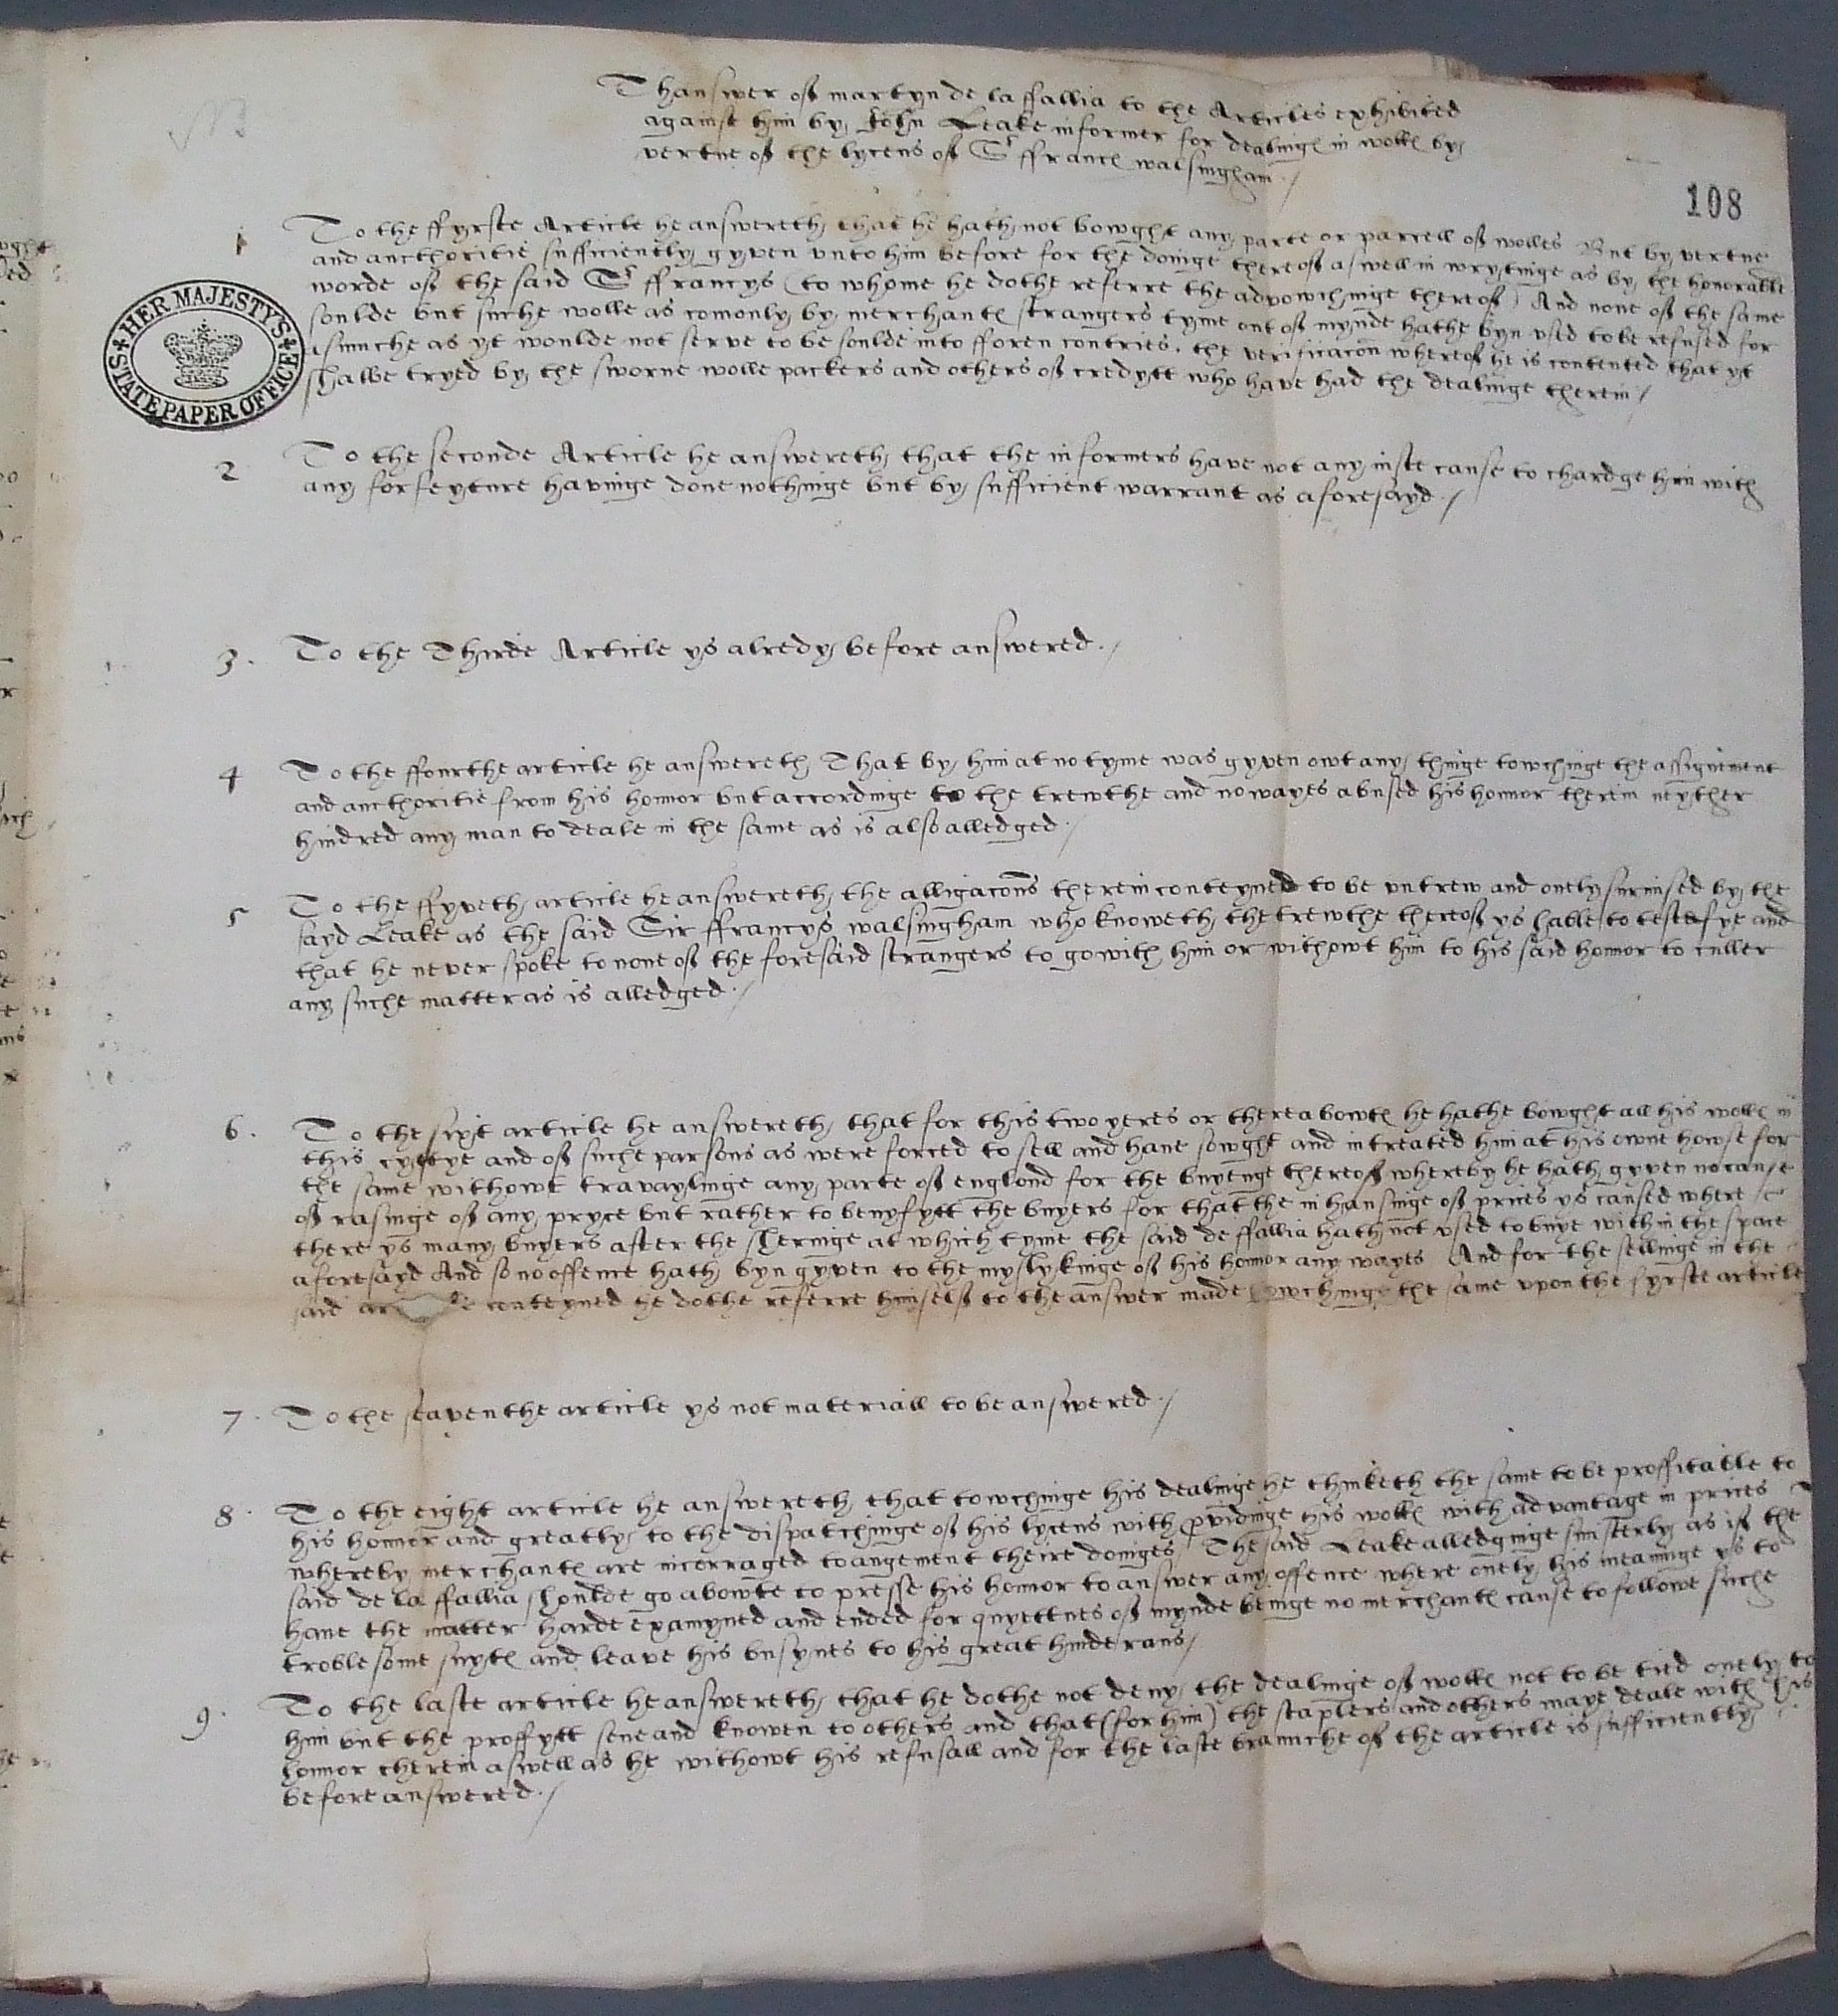 Thanswer off martyn de la ffallia to the Articles exhibited
against him by John Leake informer for dealings in wolls by
vertue off the lycens off Sr ffrancs walsingham ./
108
1 To the ffyrste Article he answereth that he hath not bowght any parte or parcell off wolles But by vertue
and aucthoritie sufficiently gyven vnto him before for the doinge thereoff aswell in wrytinge as by the honorable
worde off the said Sr ffrancys (to whome he dothe referre the advowchinge thereoff) And none off the same
soulde but suche wolle as comonly by merchants strangers tyme out off mynde hathe byn vsed to be refused for
asmuche as yt woulde not serve to be soulde into fforen contries. the verificacon whereof he is contented that yt
shalbe tryed by the sworne wolle packers and others off credytt who have had the dealinge therein /
HER MAJESTY'S
STATE PAPER OFFICE
2 To the seconde Article he answereth that the informers have not any iuste cause to chardge him with
any forfeyture havinge done nothinge but by sufficient warrant as aforesayd ./
3. To the Thirde Article ys alredy before answered ./
4 To the ffourthe article he answereth That by him at no tyme was gyven owt any thinge towchinge the assignement
and aucthoritie from his honnor but accordinge to the trewthe and no wayes abused his honnor therein neyther
hindred any man to deale in the same as is also alledged ./
5 To the ffyveth article he answereth the alligacons therein conteyned to be vntrew and onely surmised by the
sayd Leake as the said Sir ffrancys walsingham who knoweth the trewthe thereoff ys hable to testefye and
that he never spoke to none off the foresaid strangers to go with him or withowt him to his said honnor to culler
any suche matter as is alledged ./
6. To the sixt article he answereth that for this two yeres or thereabowts he hathe bowght all his wolls in
this cyttye and off suche parsons as were forced to sell and have sowght and intreated him at his owne howse for
the same withowt travaylinge any parte off englond for the buyenge thereoff whereby he hath gyven no cause
off rasinge off any pryce but rather to benyfytt the buyers for that the inhansinge off prices ys caused where
there ys many buyers after the sheringe at which tyme the said de ffallia hath not vsed to buye within the space
aforesayd And so no offence hath byn gyven to the myslykinge off his honnor any wayes And for the sellinge in the
said ar le conteyned he dothe referre himselff to the answer made towchinge the same vpon the fyrste article
7. To the seaventhe article ys not materiall to be answered ./
8. To the eight article he answereth that towchinge his dealinge he thinketh the same to be proffitable to
his honnor and greatly to the dispatchinge off his lycens with providinge his wolls with advantage in prices
whereby merchants are incorraged to augement theire doinges / The said Leake alledginge sinisterly as iff the
said de la ffallia shoulde go abowte to presse his honnor to answer any offence where onely his meaninge ys to
have the matter harde examyned and ended for quyettnes off mynde beinge no merchants cause to followe suche
troblesome suyts and leave his busynes to his great hinderans /
9. To the laste article he answereth that he dothe not deny the dealinge off wolls not to be tied onely to
him but the proffytt sene and knowen to others and that (for him) the staplers and others maye deale with his
honnor therein aswell as he withowt his refusall and for the laste braunche off the article is sufficiently
before answered ./